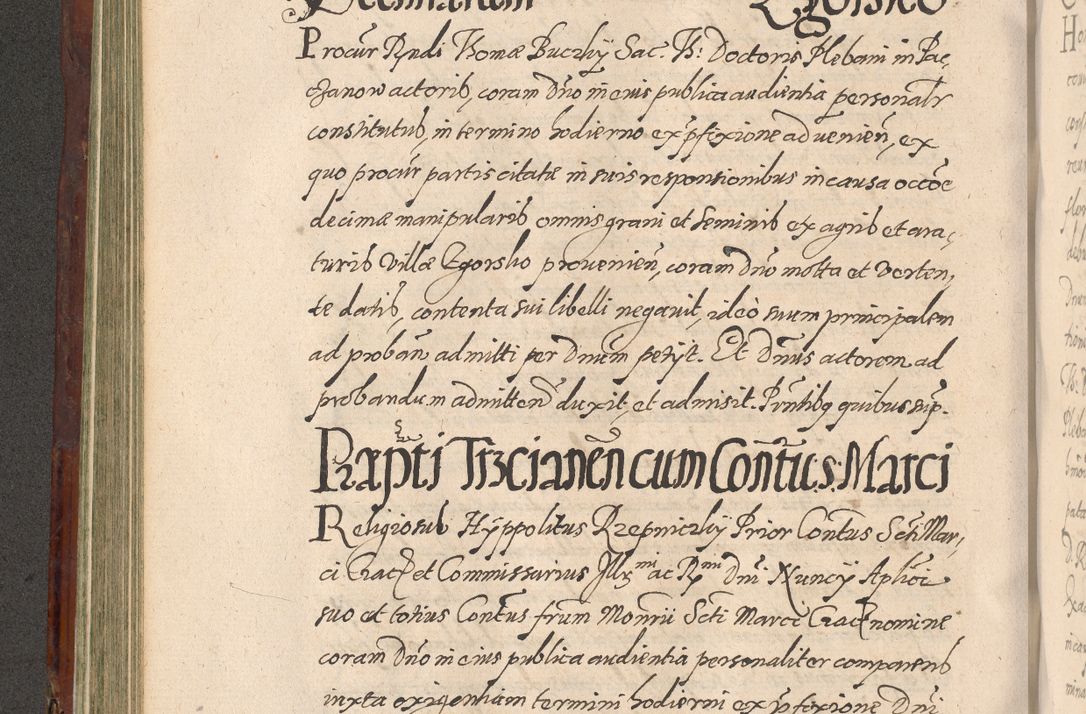 Decimarum Zgorsko
Procur Rndi Thomæ Buczkÿ Sac. Th: Doctoris Plebani in Pac,
zanow actorib, coram Dno in eius publica audientia personalr
constitutus, in termino hodierno ex pfixione advenien, ex
quo procur partis citatæ in suis responsionibus in causa occoe
decimæ manipularis omnis grani et seminis ex agris et ara,
turis villæ Zgorsko provenien, coram Dno mota et verten,
te datis, contenta sui libelli negavit, ideò suum principalem
ad proban admitti per Dnum petijt. Et Dnus actorem ad
probandum admitten duxit, et admisit. Prntibq quibus sup.
Trzcianen cum Contus S: Marci
Religiosus Hÿppolitus Rzepniczkÿ Prior Contus Scti Mar,
ci Crac et Commissarius Illr mi ac R mi Dni Nuncÿ Aplici
suo et totius Contus frum Monrii Scti Marci Crac nomine
coram Dno in eius publica audientia personaliter comparens
iuxta exigentiam termini hodierni ex pfixione Dni